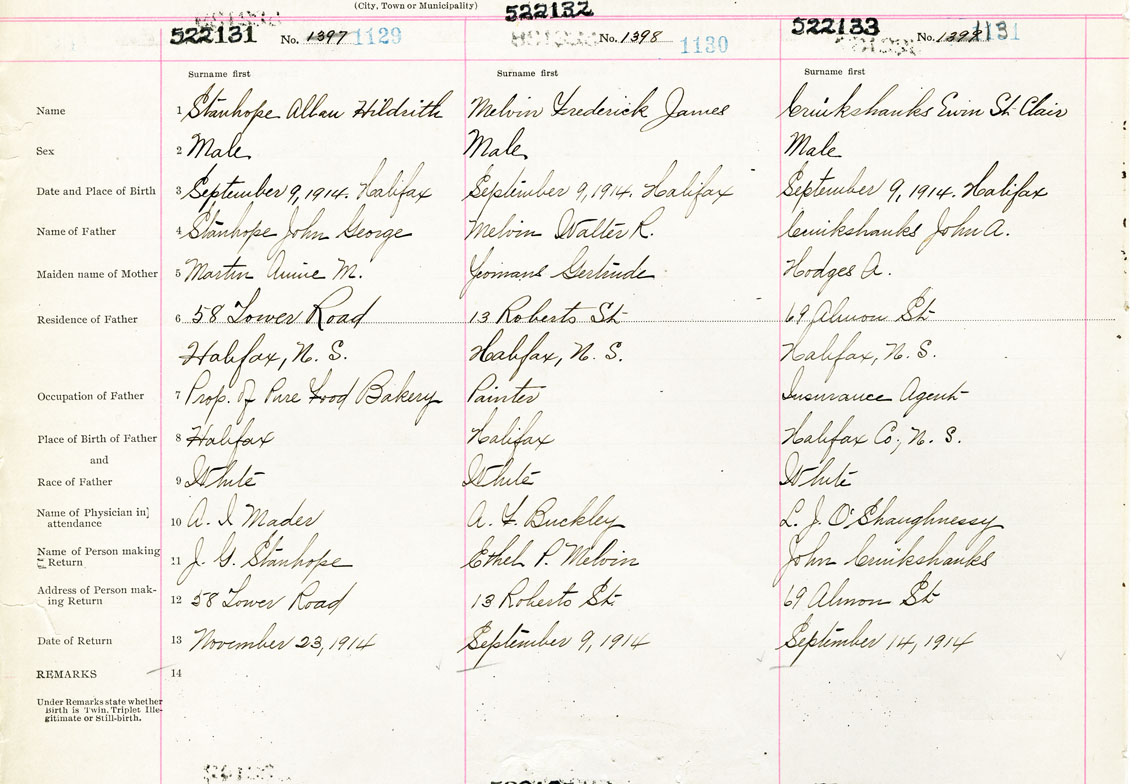 (City, Town or Municipality)
522131 No. 1397 1129
522132 No. 1398 1130
522133 No. 1131
Surname first Surname first Surname first
Name 1 Stanhope Alban Hildrith Melvin Frederick James Cruikshanks Ewin St. Clair
Sex 2 Male Male Male
Date and Place of Birth 3 September 9, 1914. Halifax September 9, 1914. Halifax September 9, 1914. Halifax
Name of Father 4 Stanhope John George Melvin Walter R. Cruikshanks John A.
Maiden name of Mother 5 Martin Annie M. Yeomans Gertrude Hodges A.
Residence of Father 6 58 Tower Road 13 Roberts St 69 Almon St
Halifax, N. S. Halifax, N. S. Halifax, N. S.
Occupation of Father 7 Prop. of Pure Food Bakery Painter Insurance Agent
Place of Birth of Father 8 Halifax Halifax Halifax Co; N. S.
and
Race of Father 9 White White White
Name of Physician in
attendance 10 A. I Mader A. F. Buckley L. J. O'Shaughnessy
Name of Person making
Return 11 J. G. Stanhope Ethel P. Melvin John Cruikshanks
Address of Person mak-
ing Return 12 58 Tower Road 13 Roberts St. 69 Almon St
Date of Return 13 November 23, 1914 September 9, 1914 September 14, 1914
REMARKS 14
Under Remarks state whether
Birth is Twin, Triplet Ille-
gitimate or Still-birth.